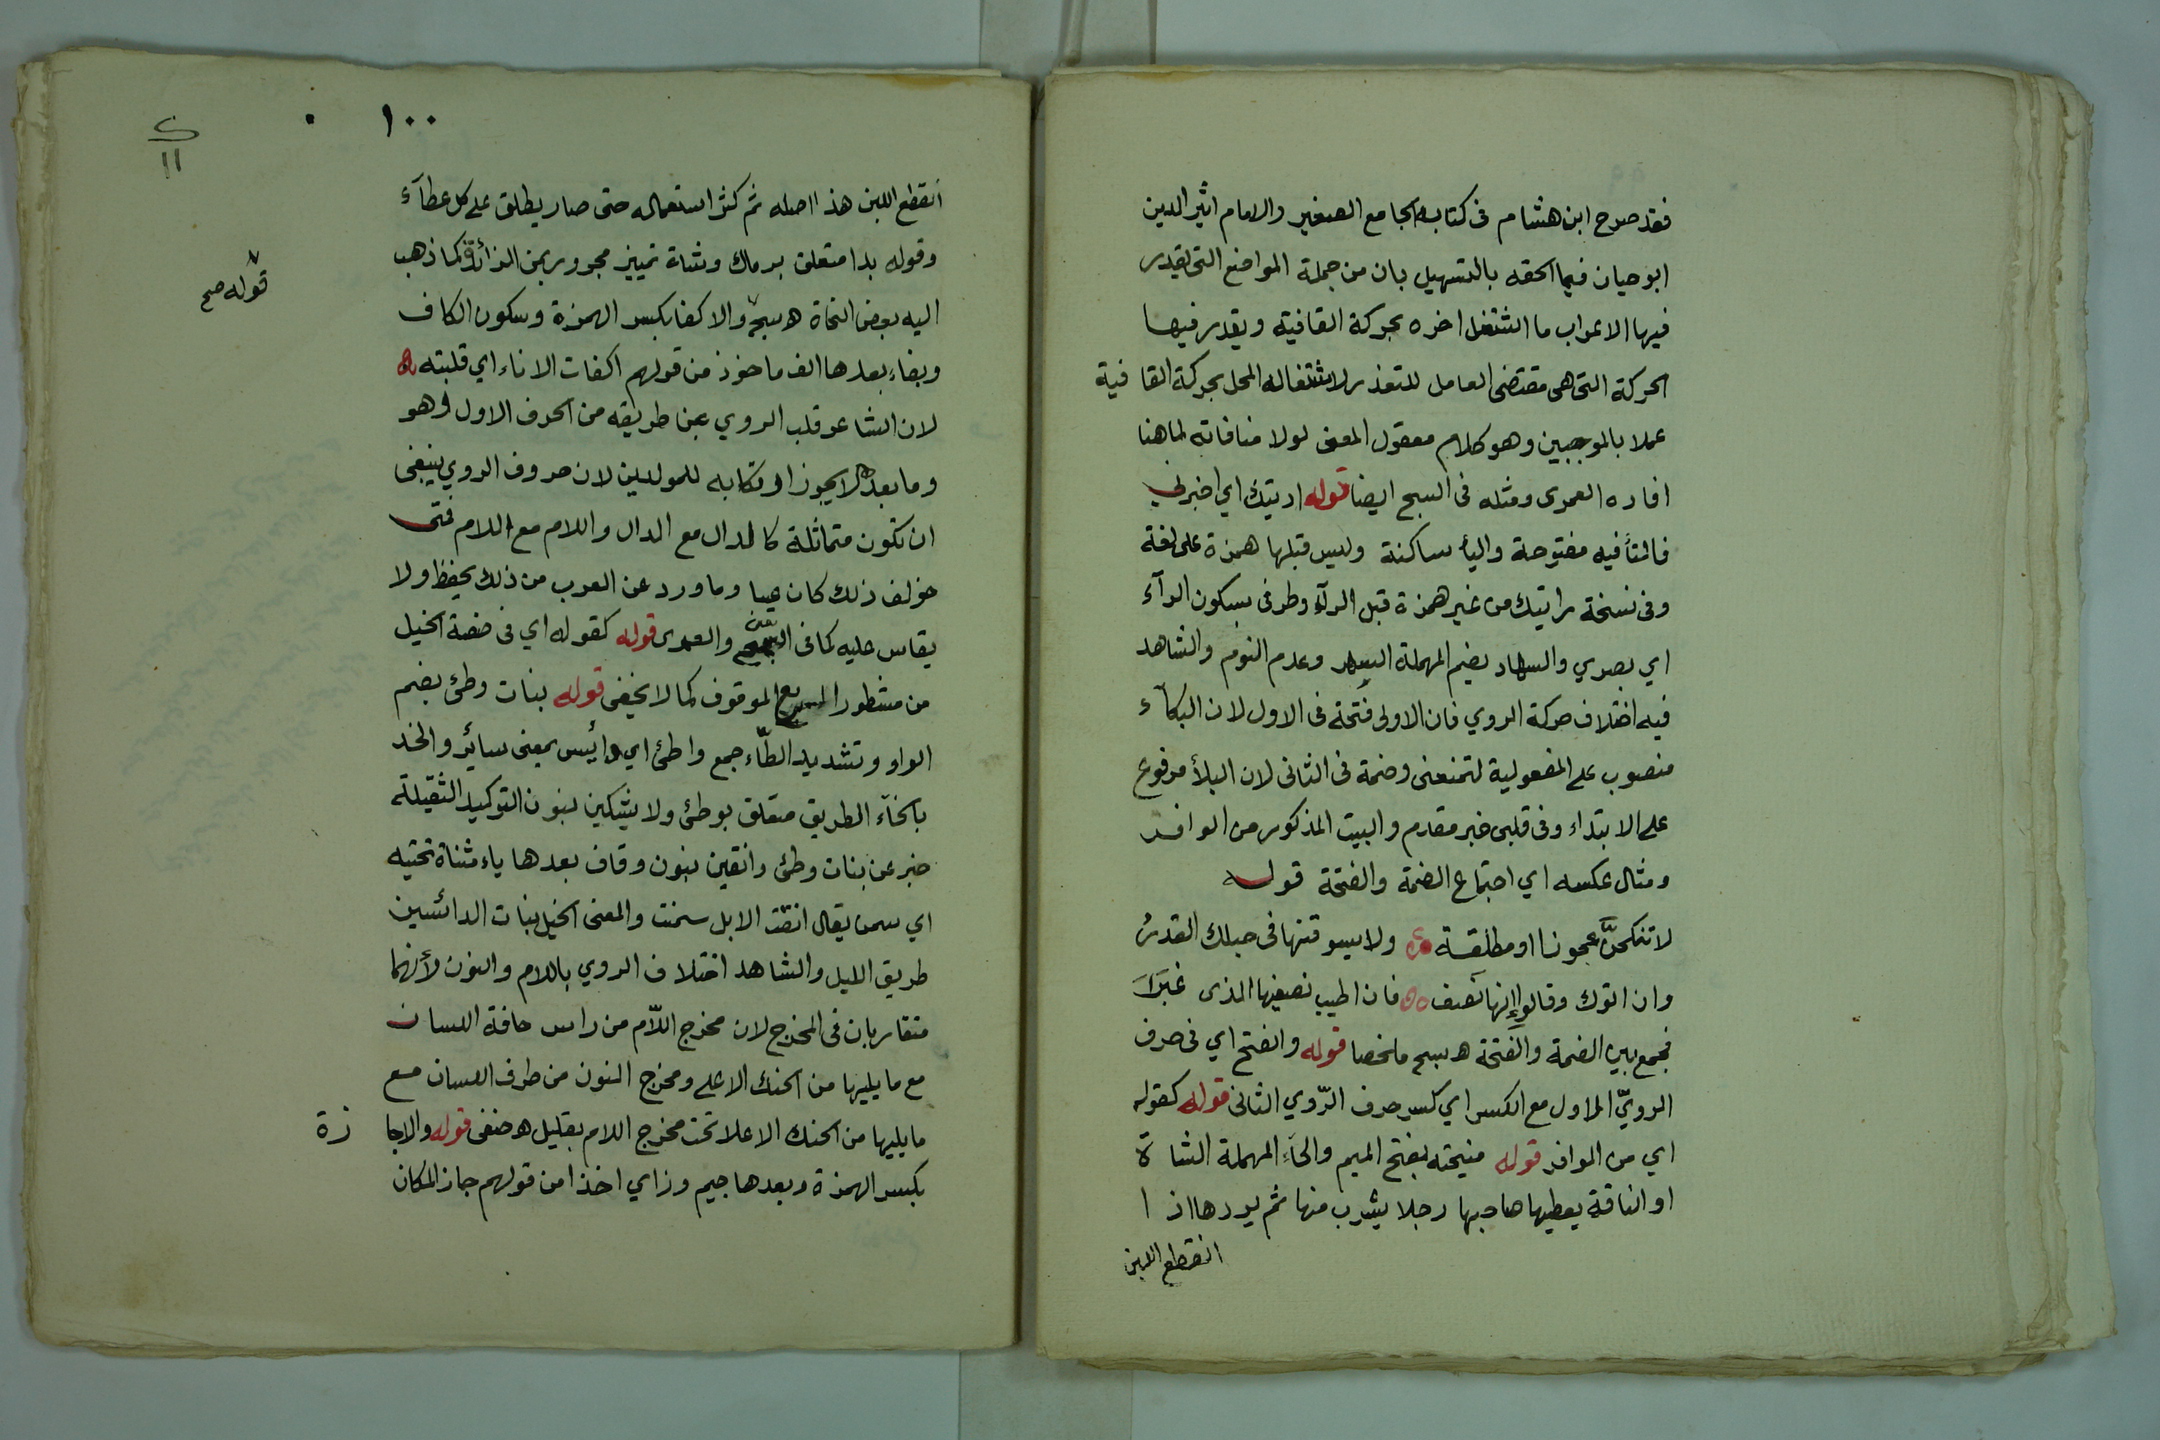 فقد صرح ابن هشام فى كتابه الجامع الصغير والامام اثير الدين
ابو حيان فيما الحقه بالتسهيل بان من جملة المواضع التى يقدر
فيها الاعراب ما اشتغل اخره بحركة القافية ويقدر فيها
الحركة التى هى مقتضى العامل للتعذر لاشتغاله المحل بحركة القافية
عملا بالموجبين وهو كلام معقول المعنى لولا منافاته لما هنا
افاده العمرى ومثله فى السبح ايضا قوله اريتك اي اخبرنى
فالتأ فيه مفتوحة واليأ ساكنة وليس قبلها همزة على لغة
وفى نسخة رايتك من غير همزة قبل الرآء وطرفى بسكون الرآء
اي بصري والسهاد بضم المهملة السهر وعدم النوم والشاهد
فيه اختلاف حركة الروي فان الاولى فتحة فى الاول لان البكآء
منصوب على المفعولية لتمنعنى وضمة فى الثانى لان البلأ مرفوع
على الابتداء وفى قلبى خبر مقدم والبيت المذكور من الوافر
ومثال عكسه اي اجتماع الضمة والفتحة قوله
لا تنكحنَّ عجوزا او مطلقة ولا يسوقنها فى حبلك القدرُ
وان اتوك وقالوا إنها نصف فان اطيب نصفيها الذى غبَرَا
فجمع بين الضمة والفتحة ه سبح ملخصا قوله والفتح اي فى حرف
الرويّ الاول مع الكسر اي كسر حرف الرّوي الثانى قوله كقوله
اي من الوافر قوله منيحته بفتح الميم والحآء المهملة الشاة
او الناقة يعطيها صاحبها رجلا يشرب منها ثم يردها اذا
انقطع اللبن
١٠٠
انقطع اللبن هذا اصله ثم كثر استعماله حتى صار يطلق على كل عطآء
وقوله بدا متعلق برماك وشاة تمييز مجرور بمن الزائدة كما ذهب
اليه بعض النحاة ه سبح والاكفا بكسر الهمزة وسكون الكاف
قوله صح
وبفاء بعدها الف ماخوذ من قولهم اكفات الاناء اي قلبته
لان الشاعر قلب الروي عن طريقه من الحرف الاول وهو
وما بعده لا يجوز ارتكابه للمولدين لان حروف الروي ينبغى
ان تكون متماثلة كالدال مع الدال واللام مع اللام فمتى
خولف ذلك كان عيبا وما ورد عن العرب من ذلك يحفظ ولا
يقاس عليه كما فى والعمرى قوله كقوله اي فى صفة الخيل
من مشطور السريع الموقوف كما لا يخفى قوله بنات وطئ بضم
الواو وتشديد الطّاء جمع واطئ اي دائس بمعنى سائر والخد
بالخآء الطريق متعلق بوطئ ولا يشكين بنون التوكيد الثقيلة
خبر عن بنات وطئ وانقين بنون وقاف بعدها ياء مثناة تحتيه
اي سمن يقال انقت الابل سمنت والمعنى الخيل بنات الدائسين
طريق الليل والشاهد اختلاف الروي باللام والنون لأنهما
متقاربان فى المخرج لان مخرج اللاّم من راس حافة اللسان
مع ما يليها من الحنك الاعلى ومخرج النون من طرف اللسان مع
ما يليها من الحنك الاعلا تحت مخرج اللام بقليل ه حنفى قوله والاجازة
بكسر الهمزة وبعدها جيم وزاي اخذا من قولهم جاز المكان